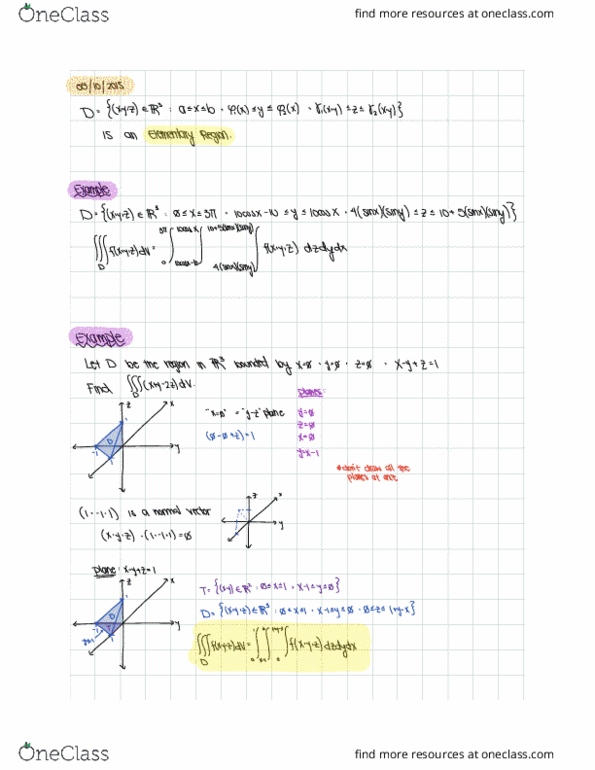 OneClass
find more resources at oneclass.com
05/10/2015
D = {(x,y,z) ∈ ℝ³ : a ≤ x ≤ b , φ₁(x) ≤ y ≤ φ₂(x) , γ₁(x,y) ≤ z ≤ γ₂(x,y)}
is an Elementary Region.
Example
D = {(x,y,z) ∈ ℝ³ : 0 ≤ x ≤ 3π , 10cosx-10 ≤ y ≤ 10cosx , 4(sinx)(siny) ≤ z ≤ 10+5(sinx)(siny)}
∭ f(x,y,z) dV = ∫ ∫ ∫ f(x,y,z) dzdydx
D
Example
Let D be the region in ℝ³ bounded by x=0 , y=0 , z=0 , x-y+z=1
Find ∭ (x+y-2z) dV.
D
planes:
"x=0" = "y-z" plane
y=0
z=0
(0-0+z)=1
x=0
y=x-1
*don't draw all the
planes at once
(1,-1,1) is a normal vector
(x,y,z) · (1,-1,1) = 0
plane: x-y+z=1
T = {(x,y) ∈ ℝ² : 0 ≤ x ≤ 1 , x-1 ≤ y ≤ 0}
D = {(x,y,z) ∈ ℝ³ : 0 ≤ x ≤ 1 , x-1 ≤ y ≤ 0 , 0 ≤ z ≤ 1+y-x}
∭ f(x,y,z) dV = ∫ ∫ ∫ f(x,y,z) dzdydx
D
OneClass
find more resources at oneclass.com